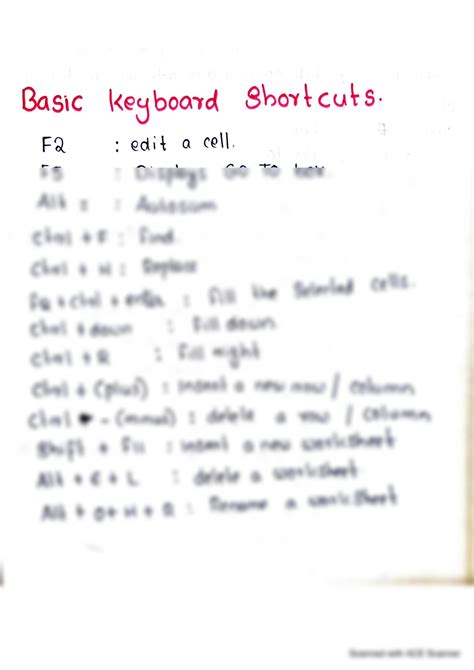 Basic Keyboard Shortcuts.
F2 : edit a cell.
F5 : Displays Go To box.
Alt = : Autosum
Ctrl + F : Find.
Ctrl + H : Replace
+ Ctrl + enter : Fill the Selected cells.
Ctrl + down : Fill down
Ctrl + R : Fill right
Ctrl + (plus) : insert a new row / column
Ctrl - (minus) : delete a row / column
Shift + : insert a new worksheet
Alt + E + L : delete a worksheet
Alt + O + H + R : Rename a worksheet
Scanned with ACE Scanner